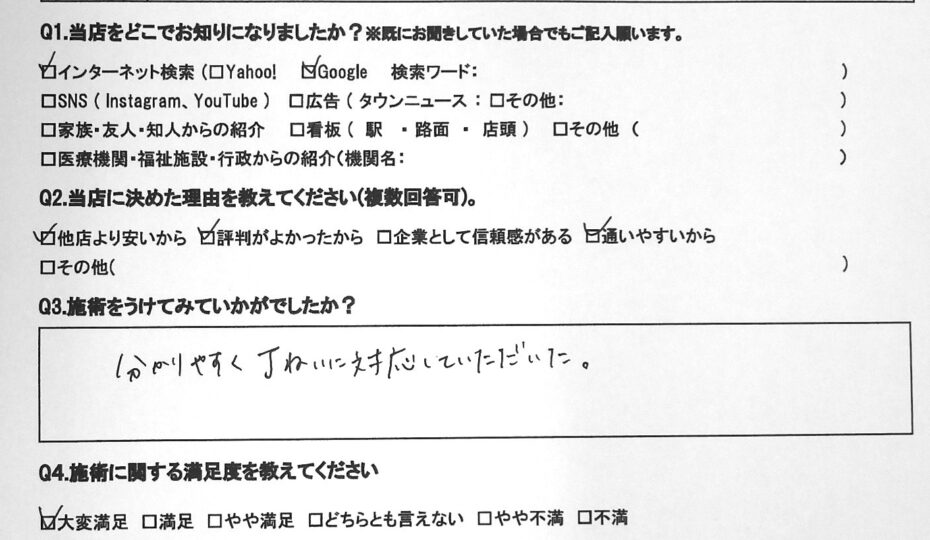 Q1.当店をどこでお知りになりましたか?※既にお聞きしていた場合でもご記入願います。
☑インターネット検索 (□Yahoo! ☑Google 検索ワード: )
□SNS ( Instagram、YouTube ) □広告 ( タウンニュース : □その他: )
□家族・友人・知人からの紹介 □看板 ( 駅 ・路面 ・ 店頭 ) □その他 ( )
□医療機関・福祉施設・行政からの紹介(機関名: )
Q2.当店に決めた理由を教えてください(複数回答可)。
☑他店より安いから ☑評判がよかったから □企業として信頼感がある ☑通いやすいから
□その他( )
Q3.施術をうけてみていかがでしたか?
分かりやすく丁ねいに対応していただいた。
Q4.施術に関する満足度を教えてください
☑大変満足 □満足 □やや満足 □どちらとも言えない □やや不満 □不満